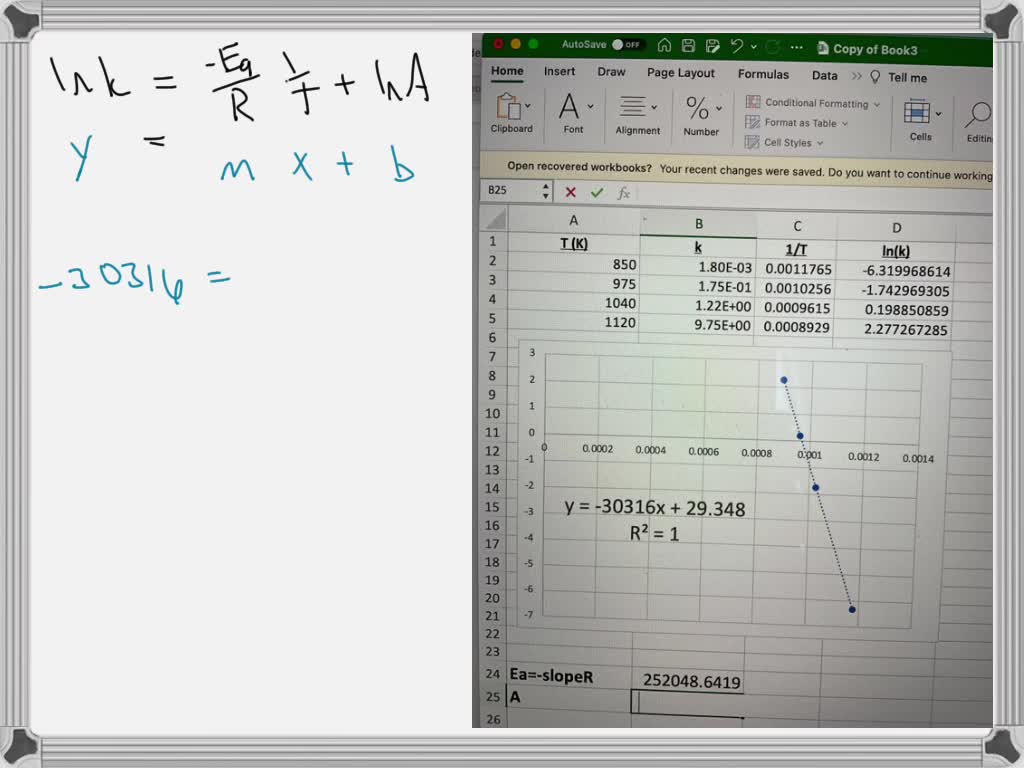 ln k = -Ea/R 1/T + ln A
y = m x + b
-30316 =
AutoSave OFF ... Copy of Book3
Home Insert Draw Page Layout Formulas Data >> Tell me
Clipboard Font Alignment Number Conditional Formatting Format as Table Cell Styles Cells Editin
Open recovered workbooks? Your recent changes were saved. Do you want to continue working
B25 fx
A B C D
1 T (K) k 1/T ln(k)
2 850 1.80E-03 0.0011765 -6.319968614
3 975 1.75E-01 0.0010256 -1.742969305
4 1040 1.22E+00 0.0009615 0.198850859
5 1120 9.75E+00 0.0008929 2.277267285
6
7 3
8 2
9
10 1
11 0
12 0 0.0002 0.0004 0.0006 0.0008 0.001 0.0012 0.0014
13 -1
14 -2
15 -3 y = -30316x + 29.348
16 R² = 1
17 -4
18 -5
19
20 -6
21 -7
22
23
24 Ea=-slopeR 252048.6419
25 A
26